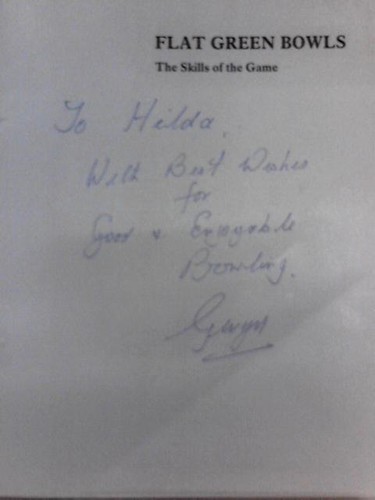 FLAT GREEN BOWLS
The Skills of the Game
To Hilda,
With Best Wishes
for
Good & Enjoyable
Bowling.
Gwyn